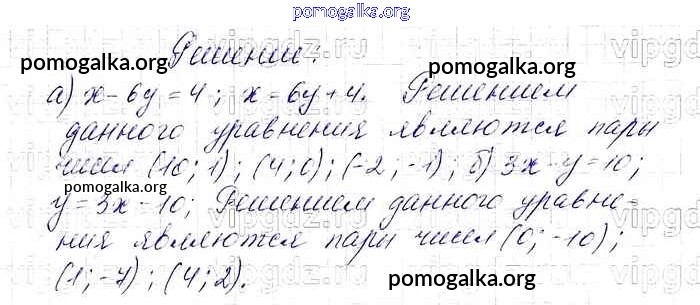 pomogalka.org
Решение:
pomogalka.org
pomogalka.org
а) x - 6y = 4; x = 6y + 4. Решением
данного уравнения являются пары
чисел (10; 1); (4; 0); (-2; -1); б) 3x - y = 10;
pomogalka.org
y = 3x - 10; Решением данного уравне-
ния являются пары чисел (0; -10);
(1; -7); (4; 2).
pomogalka.org
pomogalka.org